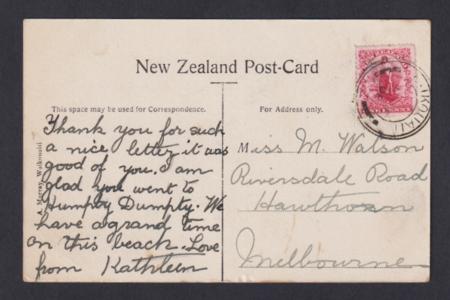 New Zealand Post-Card
This space may be used for Correspondence.
For Address only.
Thank you for such
a nice letter, it was
good of you. I am
glad you went to
Humpty Dumpty. We
have a grand time
on this beach. Love
from Kathleen
Miss M. Watson
Riversdale Road
Hawthorn
Melbourne
A. Murray, Waikouaiti